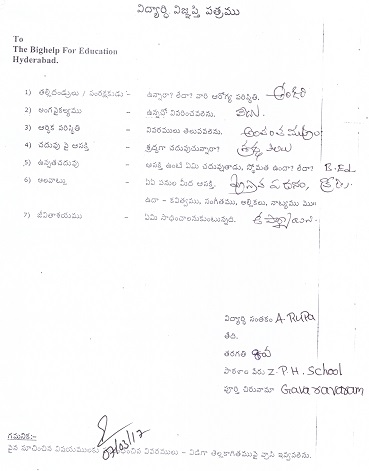 విద్యార్థి విజ్ఞప్తి పత్రము
To
The Bighelp For Education
Hyderabad.
1) తల్లిదండ్రులు / సంరక్షకుడు - ఉన్నారా? లేదా? వారి ఆరోగ్య పరిస్థితి.
2) అంగవైకల్యము - ఉన్నచో వివరించవలెను. లేదు
3) ఆర్థిక పరిస్థితి - వివరములు తెలుపవలెను.
4) చదువు పై ఆసక్తి - శ్రద్ధగా చదువుచున్నారా?
5) ఉన్నతచదువు - ఆసక్తి ఉంటే ఏమి చదువుతాడు, స్తోమత ఉందా? లేదా? B.Ed
6) అలవాట్లు - ఏఏ పనుల మీద ఆసక్తి.
ఉదా - కవిత్వము, సంగీతము, అల్లికలు, నాట్యము
7) జీవితాశయము - ఏమి సాధించాలనుకుంటున్నది.
విద్యార్థి సంతకం A RUPA
తేది.
తరగతి
పాఠశాల పేరు Z.P.H. School
పూర్తి చిరునామా Gavaravaram
07/03/17
గమనిక:-
పైన సూచించిన విషయములకు సంబంధించిన వివరములు - విడిగా తెల్లకాగితముపై వ్రాసి ఇవ్వవలెను.